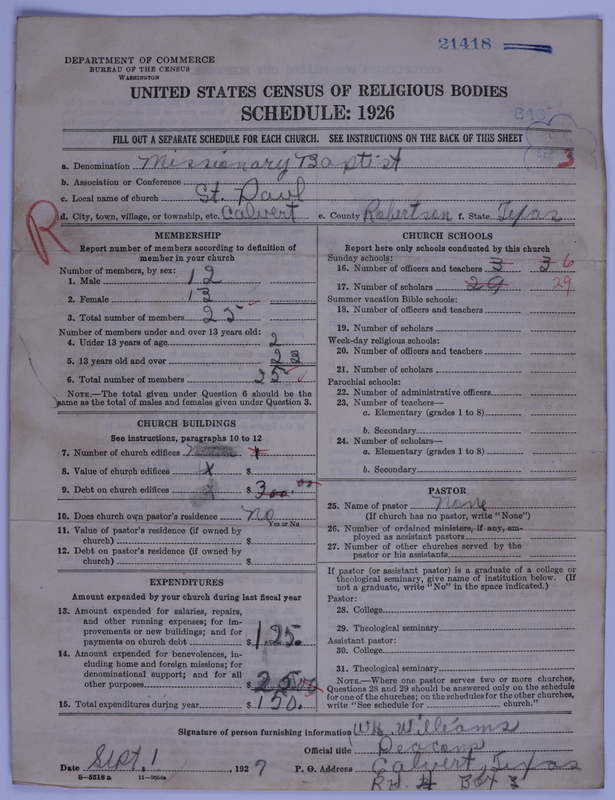 21418
DEPARTMENT OF COMMERCE
BUREAU OF THE CENSUS
WASHINGTON
UNITED STATES CENSUS OF RELIGIOUS BODIES
SCHEDULE: 1926
FILL OUT A SEPARATE SCHEDULE FOR EACH CHURCH. SEE INSTRUCTIONS ON THE BACK OF THIS SHEET
a. Denomination Missionary Baptist
b. Association or Conference
c. Local name of church St. Paul
d. City, town, village, or township, etc. Calvert e. County Robertson f. State Texas
R
MEMBERSHIP
Report number of members according to definition of
member in your church
Number of members, by sex:
1. Male 12
2. Female 13
3. Total number of members 25
Number of members under and over 13 years old:
4. Under 13 years of age 2
5. 13 years old and over 23
6. Total number of members 25
NOTE.—The total given under Question 6 should be the
same as the total of males and females given under Question 3.
CHURCH BUILDINGS
See instructions, paragraphs 10 to 12
7. Number of church edifices
8. Value of church edifices $
9. Debt on church edifices $ 300.00
10. Does church own pastor's residence No
Yes or No
11. Value of pastor's residence (if owned by
church) $
12. Debt on pastor's residence (if owned by
church) $
EXPENDITURES
Amount expended by your church during last fiscal year
13. Amount expended for salaries, repairs,
and other running expenses; for im-
provements or new buildings; and for
payments on church debt $ 125.
14. Amount expended for benevolences, in-
cluding home and foreign missions; for
denominational support; and for all
other purposes $ 25.00
15. Total expenditures during year $ 150.
CHURCH SCHOOLS
Report here only schools conducted by this church
Sunday schools:
16. Number of officers and teachers 3 3 6
17. Number of scholars 29 29
Summer vacation Bible schools:
18. Number of officers and teachers
19. Number of scholars
Week-day religious schools:
20. Number of officers and teachers
21. Number of scholars
Parochial schools:
22. Number of administrative officers
23. Number of teachers—
a. Elementary (grades 1 to 8)
b. Secondary
24. Number of scholars—
a. Elementary (grades 1 to 8)
b. Secondary
PASTOR
25. Name of pastor None
(If church has no pastor, write "None")
26. Number of ordained ministers, if any, em-
ployed as assistant pastors
27. Number of other churches served by the
pastor or his assistants
If pastor (or assistant pastor) is a graduate of a college or
theological seminary, give name of institution below. (If
not a graduate, write "No" in the space indicated.)
Pastor:
28. College
29. Theological seminary
Assistant pastor:
30. College
31. Theological seminary
NOTE.—Where one pastor serves two or more churches,
Questions 28 and 29 should be answered only on the schedule
for one of the churches; on the schedules for the other churches,
write "See schedule for church."
Signature of person furnishing information W.H. Williams
Official title Deacons
Date Sept. 1, 1927 P. O. Address Calvert, Texas
8-5518a 11-9054a
Box 3